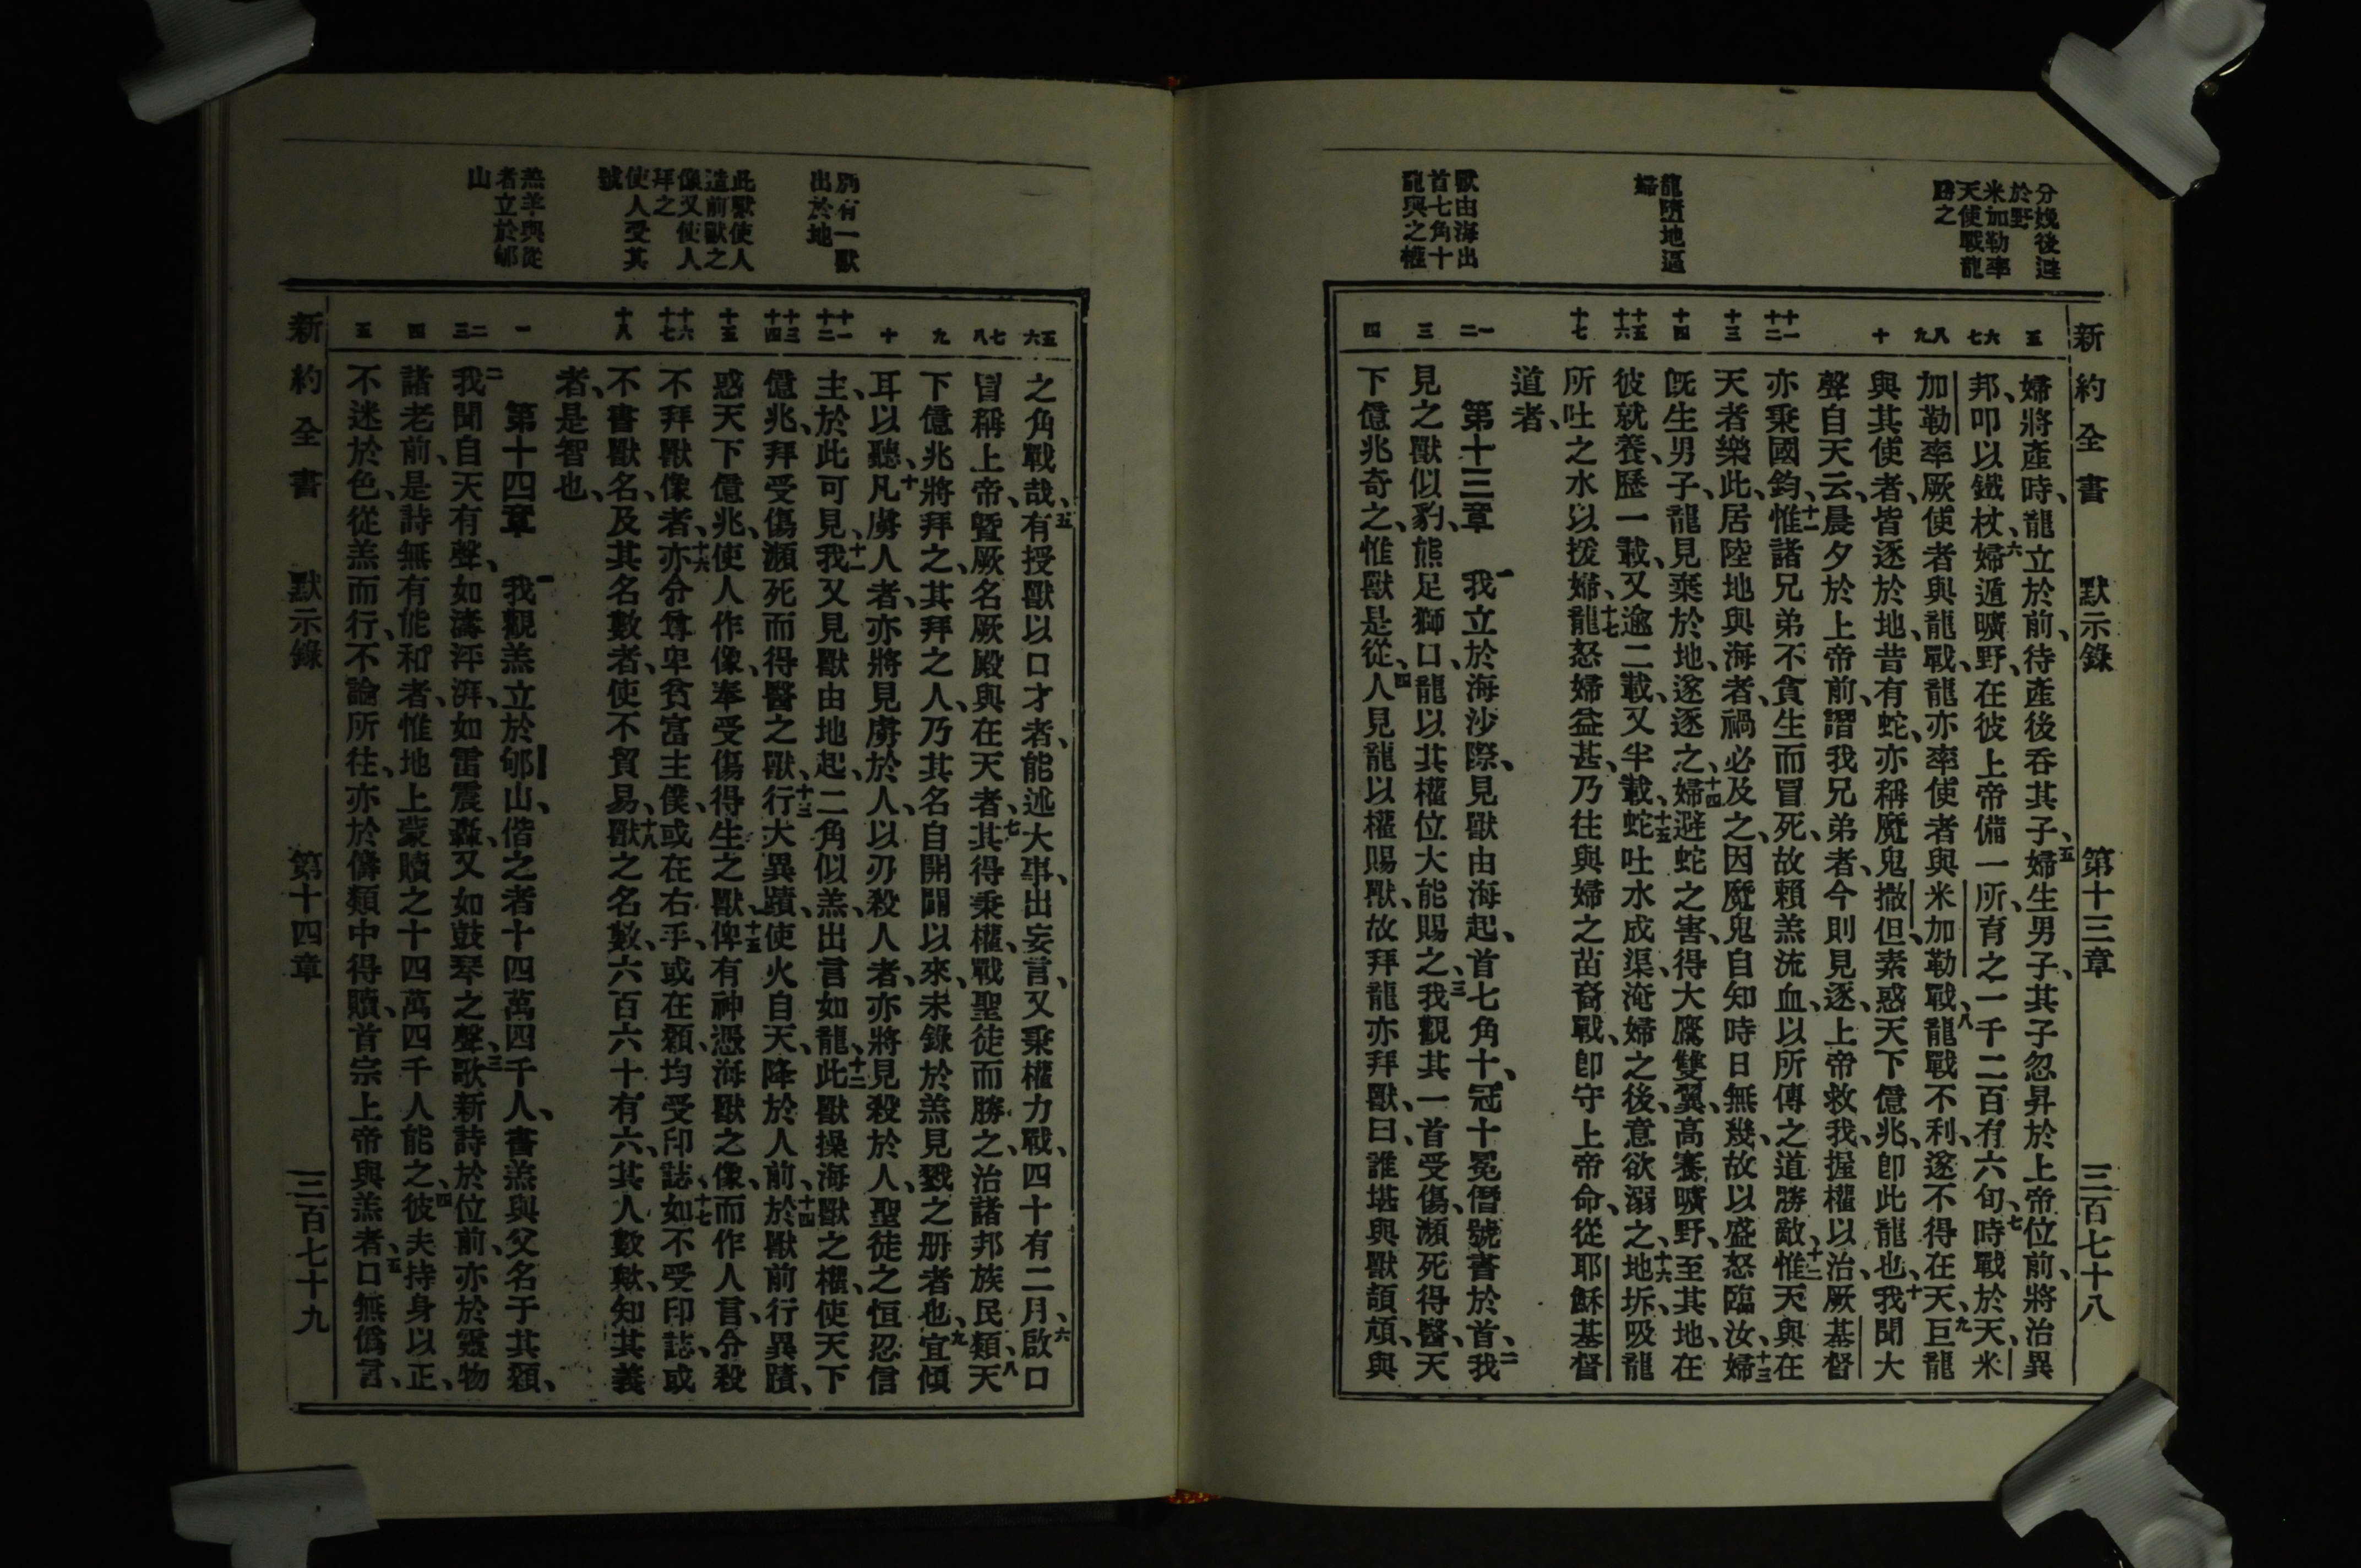 新約全書 默示錄 第十三章 三百七十八
分娩後避
於野
米加勒率
天使戰龍
勝之
龍墮地逼
婦
獸由海出
首七角十
龍與之權
五
六七
八九
十
十一十二
十三
十四
十五十六
十七
一二
三
四
婦將產時、龍立於前、待產後吞其子、五婦生男子、其子忽昇於上帝位前、將治異
邦、叩以鐵杖、六婦遁曠野、在彼上帝備一所、育之一千二百有六旬、七時戰於天、米
加勒率厥使者與龍戰、龍亦率使者與米加勒戰、八龍戰不利、遂不得在天、九巨龍
與其使者、皆逐於地、昔有蛇、亦稱魔鬼撒但、素惑天下億兆、卽此龍也、十我聞大
聲自天云、晨夕於上帝前、譖我兄弟者、今則見逐、上帝救我、握權以治、厥基督
亦秉國鈞、十一惟諸兄弟不貪生而冒死、故賴羔流血、以所傳之道勝敵、十二惟天與在
天者樂此、居陸地與海者、禍必及之、因魔鬼自知時日無幾、故以盛怒臨汝、十三婦
旣生男子、龍見棄於地、遂逐之、十四婦避蛇之害、得大鷹雙翼、高騫曠野、至其地、在
彼就養、歷一載、又逾二載、又半載、十五蛇吐水成渠、淹婦之後、意欲溺之、十六地坼、吸龍
所吐之水以援婦、十七龍怒婦益甚、乃往與婦之苗裔戰、卽守上帝命、從耶穌基督
道者、
第十三章 一我立於海沙際、見獸由海起、首七角十、冠十冕、僭號書於首、二我
見之獸似豹、熊足獅口、龍以其權位大能賜之、三我觀其一首受傷、瀕死得醫、天
下億兆奇之、惟獸是從、四人見龍以權賜獸、故拜龍亦拜獸、曰、誰堪與獸頡頏、與
別有一獸
出於地
此獸使人
造前獸之
像又使人
拜之
使人受其
號
羔羊與從
者立於郇
山
五六
七八
九
十
十一十二
十三十四
十五
十六十七
十八
一
二三
四
五
之角戰哉、五有授獸以口才者、能述大事、出妄言、又秉權力戰、四十有二月、六啟口
冒稱上帝、曁厥名厥殿、與在天者、七其得秉權、戰聖徒而勝之、治諸邦族民類、八天
下億兆將拜之、其拜之人、乃其名自開闢以來、未錄於羔見戮之册者也、九宜傾
耳以聽、十凡虜人者、亦將見虜於人、以刃殺人者、亦將見殺於人、聖徒之恒忍信
主、於此可見、十一我又見獸由地起、二角似羔、出言如龍、十二此獸操海獸之權、使天下
億兆、拜受傷瀕死而得醫之獸、十三行大異蹟、使火自天、降於人前、十四於獸前行異蹟、
惑天下億兆、使人作像、奉受傷得生之獸、十五俾有神憑海獸之像、而作人言、分殺
不拜獸像者、十六亦分尊卑貧富主僕、或在右手、或在顙、均受印誌、十七如不受印誌、或
不書獸名、及其名數者、使不貿易、十八獸之名數、六百六十有六、其人數歟、知其義
者、是智也、
第十四章 一我觀羔立於郇山、偕之者十四萬四千人、書羔與父名于其顙、
二我聞自天有聲、如濤泙湃、如雷震轟、又如鼓琴之聲、三歌新詩於位前、亦於靈物
諸老前、是詩無有能和者、惟地上蒙贖之十四萬四千人能之、四彼夫持身以正、
不迷於色、從羔而行、不論所往、亦於儕類中得贖、首宗上帝與羔者、五口無僞言、
新約全書 默示錄 第十四章 三百七十九